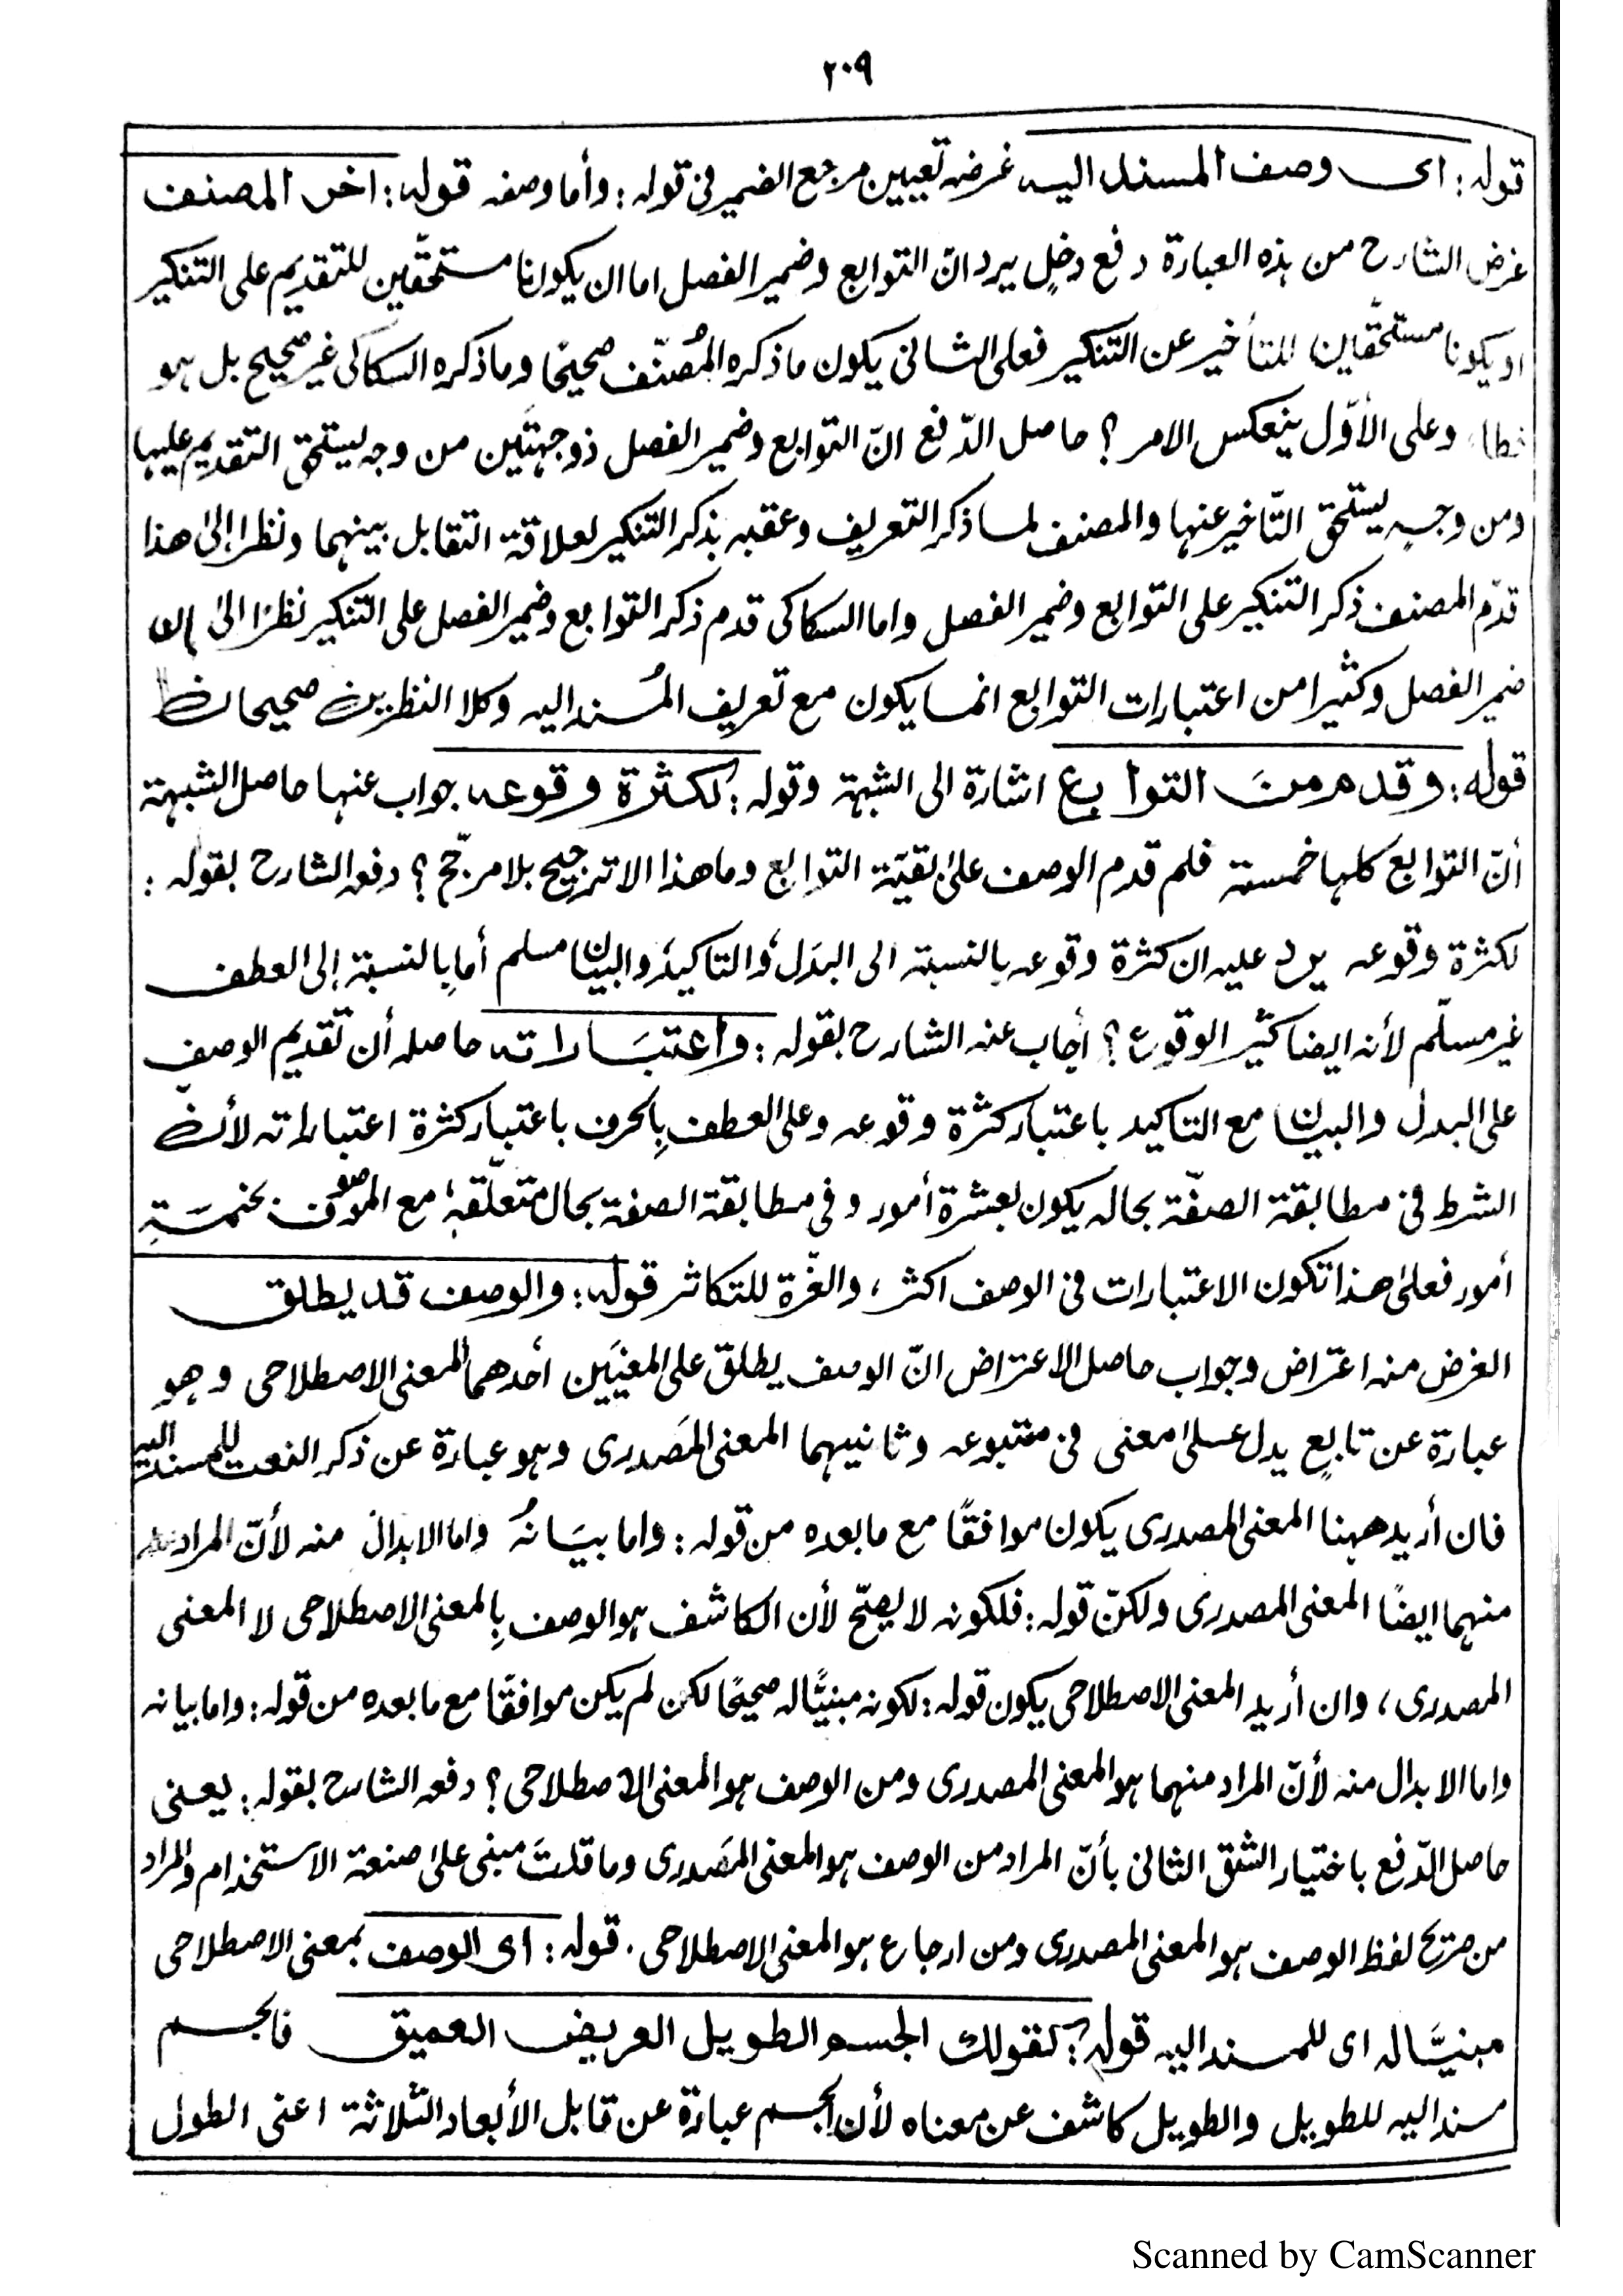 ٢٠٩
قوله: اى وصف المسند اليه غرضه تعيين مرجع الضمير فى قوله: وأما وصفه قوله: اخر المصنف
غرض الشارح من هذه العبارة دفع دخلٍ يرد انّ التوابع وضمير الفصل اما ان يكوانا مستحقّين للتقديم على التنكير
او يكونا مستحقّان للتأخير عن التنكير فعلى الثانى يكون ما ذكره المُصنّف صحيحًا وما ذكره السكاكى غير صحيح بل هو
خطاء وعلى الأوّل ينعكس الامر؟ حاصل الدّفع انّ التوابع وضمير الفصل ذو جهتَين من وجه يستحق التقديم عليها
ومن وجهٍ يستحق التّاخير عنها والمصنف لما ذكر التعريف وعقبه بذكر التنكير لعلاقة التقابل بينهما ونظرا إلىٰ هذا
قدّم المصنف ذكر التنكير على التوابع وضمير الفصل واما السكاكى قدم ذكر التوابع وضمير الفصل على التنكير نظرًا الىٰ ان
ضمير الفصل وكثيرا من اعتبارات التوابع انما يكون مع تعريف المُسند اليه وكلا النظرين صحيحان
قوله: وقدم منَ التوابع اشارة الى الشبهة وقوله: لكثرة وقوعه جواب عنها حاصل الشبهة
أنّ التوابعَ كلها خمسة فلم قدم الوصف علىٰ بقيّة التوابع وما هذا الا ترجيح بلا مرجّح؟ دفعه الشارح بقوله:
لكثرة وقوعه يرد عليه ان كثرة وقوعه بالنسبة الى البدَل والتاكيد والبيان مسلم أما بالنسبة إلى العطف
غير مسلّم لأنه ايضا كثير الوقوع؟ أجاب عنه الشارح بقوله: واعتبَاراته حاصله أن تقديم الوصف
على البدل والبيان مع التاكيد باعتبار كثرة وقوعه وعلى العطف بالحرف باعتبار كثرة اعتباراته لأن
الشرط فى مطابقة الصفّة بحاله يكون بعشرة أمور وفى مطابقة الصفة بحال متعلّقهٖ مع الموصوف بخمسَةِ
أمور فعلىٰ هذا تكون الاعتبارات فى الوصف اكثر، والغرّة للتكاثر قوله: والوصف قد يطلق
الغرض منه اعتراض وجواب حاصل الاعتراض انّ الوصف يطلق على المعنيَين أحدهما المعنى الاصطلاحى وهو
عبارة عن تابعٍ يدل علىٰ معنى فى متبوعه وثانيهما المعنى المَصدرى وهو عبارة عن ذكر النعت للمسند اليه
فان أريد ههنا المعنى المصدرى يكون موافقًا مع ما بعده من قوله: واما بيَانهُ واما الابدال منه لأنّ المراد
منهما ايضًا المعنى المصدرى ولكنّ قوله: فلكونه لا يصحّ لأن الكاشف هو الوصف بِالمعنى الاصطلاحى لا المعنى
المصدرى، وان أريد المعنى الاصطلاحى يكون قوله: لكونه مبنيًّا له صحيحًا لكن لم يكن موافقًا مع ما بعده من قوله: واما بيانه
واما الابدال منه لأنّ المراد منهما هو المعنى المصدرى ومن الوصف هو المعنى الاصطلاحى؟ دفعه الشارح بقوله: يعنى
حاصل الدّفع باختيار الشق الثانى بأنّ المراد من الوصف هو المعنى المَصدرى وما قلتَ مبنى علىٰ صنعة الاستخدام والمراد
من صريح لفظ الوصف هو المعنى المصدرى ومن ارجاع هو المعنى الاصطلاحى. قوله: اى الوصف بمعنى الاصطلاحى
مبنيًّا له اى للمسند اليه قوله: كقولك الجسم الطويل العريض العميق فالجسم
مسند اليه للطويل والطويل كاشف عن معناه لأن الجسم عبارة عن قابل الأبعاد الثّلاثة اعنى الطول
Scanned by CamScanner